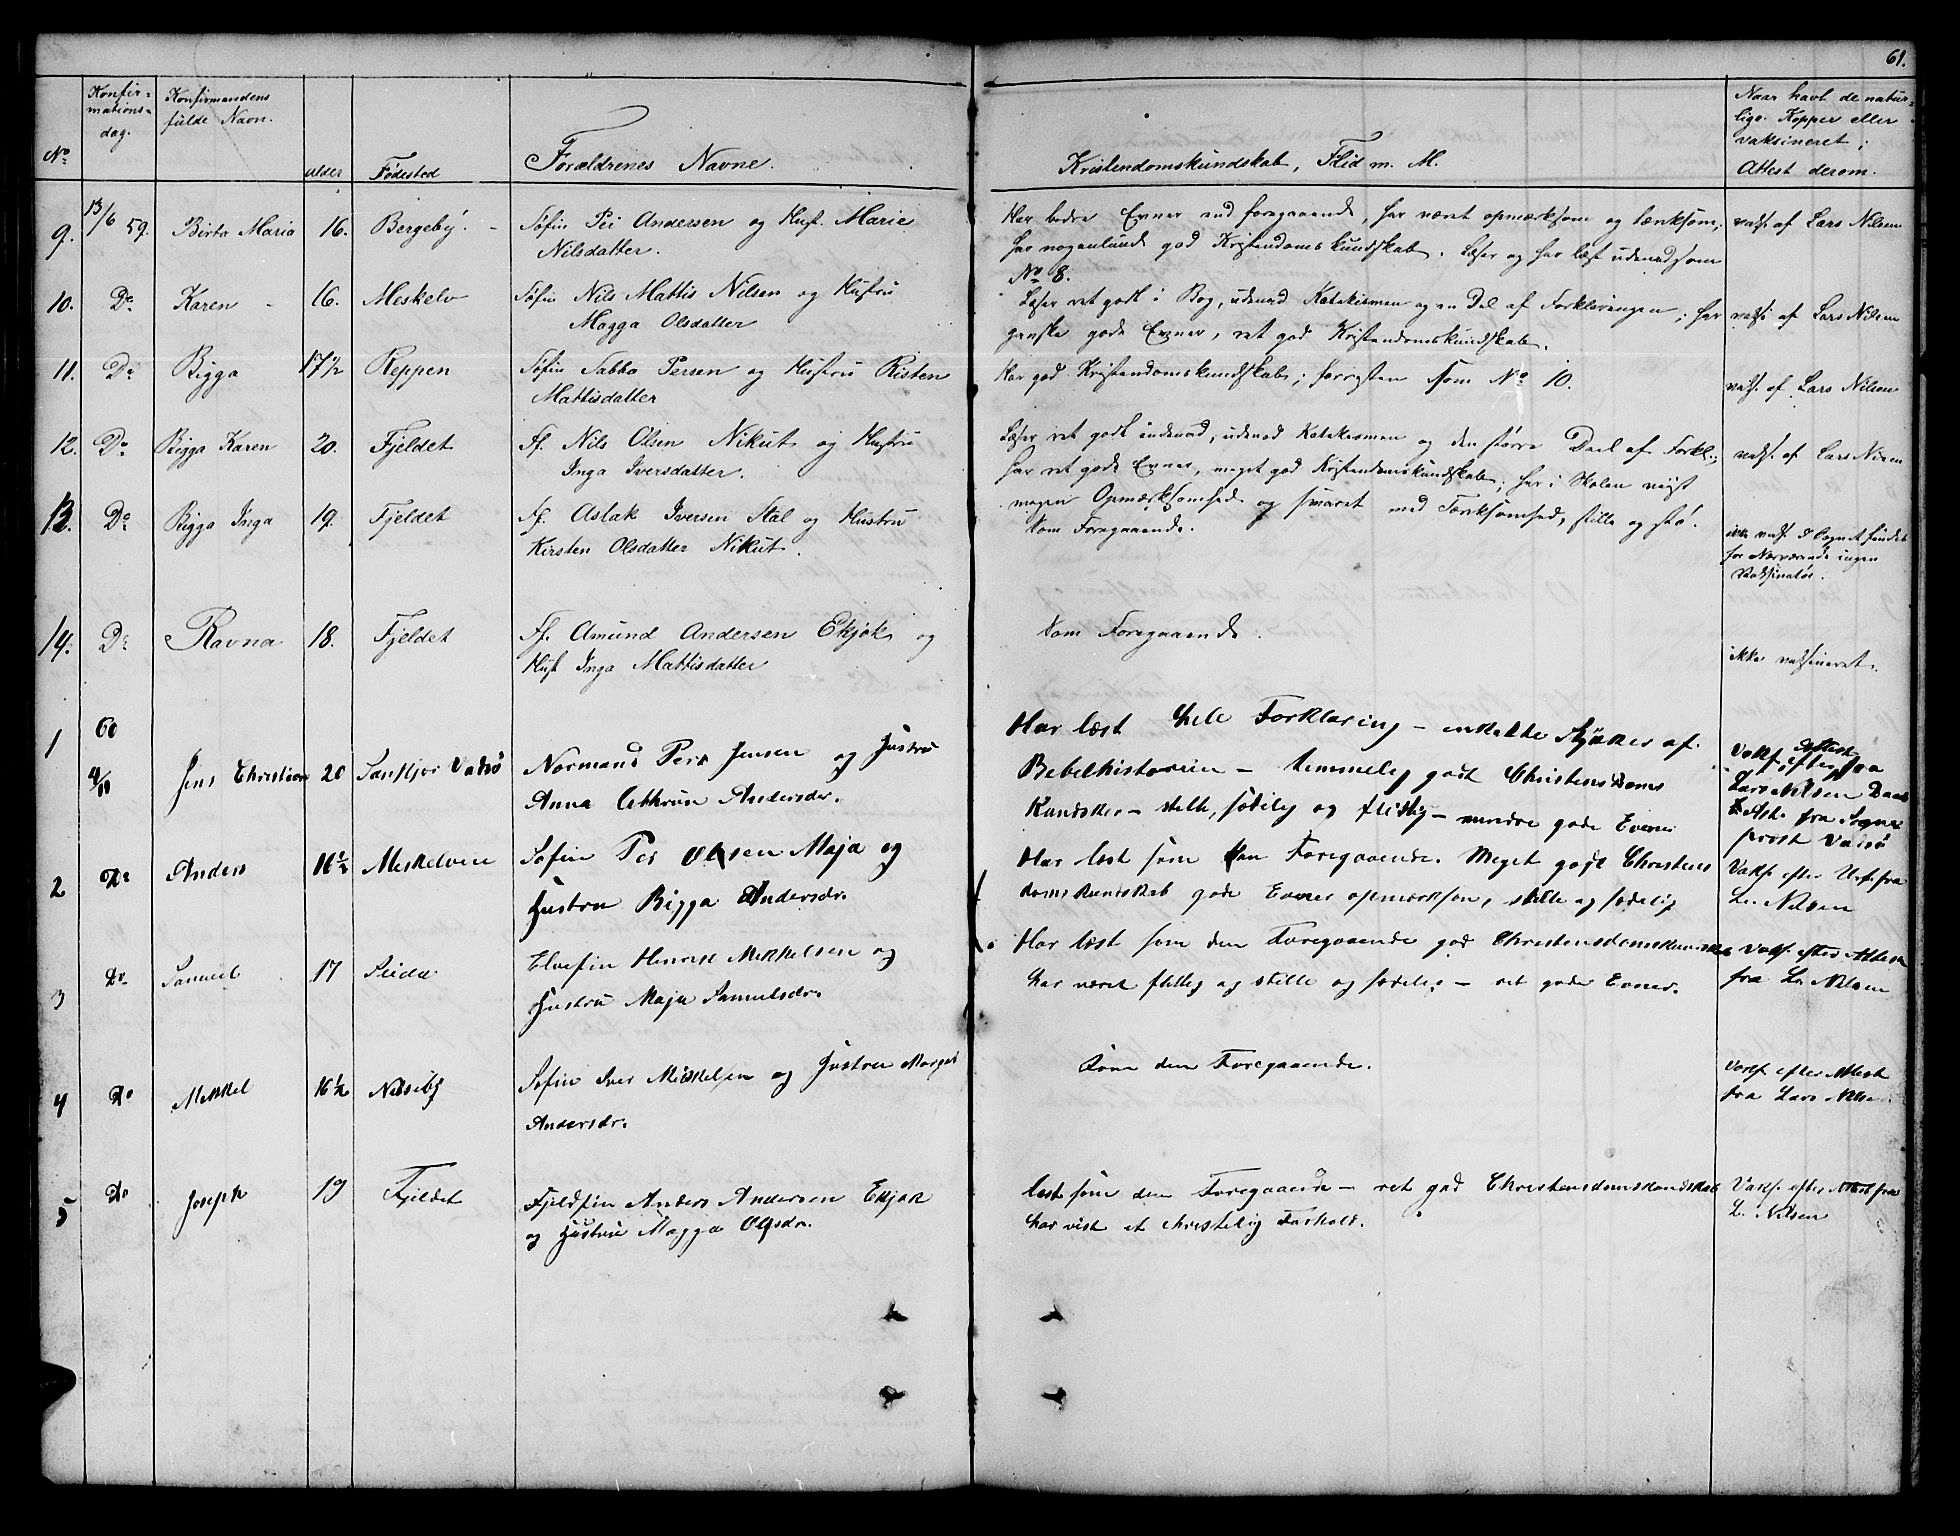 61.
No.
Konfir-
mations-
dag.
Konfirmandens
fulde Navn.
alder
Fødested
Forældrenes Navne.
Kristendomskundskab, Flid m. M.
Naar havt de natur-
lige Kopper eller
vaksineret;
Attest derom.
9. 13/6 59. Birta Maria 16. Bergeby. Søfin Per Andersen og Hust. Marie
Nilsdatter.
Har bedre Evner end foregaaende, har været opmærksom og lærksom,
har nogenlunde god Kristendomskundskab. Læser og har læst udenad som
No 8.
vaks. af Lars Nilsen
10. Do. Karen 16. Meskelv Søfin Nils Mattis Nilsen og Hustru
Magga Olsdatter
Læser ret godt i Bog, udenad Katekismen og en Del af Forklaringen; har
ganske gode Evner, ret god Kristendomskundskab.
vaks. af Lars Nilsen
11. Do. Bigga 17 1/2 Reppen Søfin Sabba Persen og Hustru Risten
Mattisdatter
Har god Kristendomskundskab; forresten som No 10.
vaks. af Lars Nilsen
12. Do. Bigga Karen 20. Fjeldet Ff. Nils Olsen Nikut og Hustru
Inga Iversdatter.
Læser ret godt indenad, udenad Katekismen og den større Deel af Forkl.;
har ret gode Evner, meget god Kristendomskundskab; har i Skolen viist
megen Opmærksomhed og svaret med Tænksomhed, stille og
vaks. af Lars Nilsen
13. Do. Bigga Inga 19. Fjeldet Ff. Aslak Iversen Stal og Hustru
Kirsten Olsdatter Nikut.
Som Foregaaende.
ikke vaks. I Sognet findes
for Nærværende ingen
Vaksinatør.
14. Do. Ravna 18. Fjeldet Ff. Amund Andersen Ekjok og
Hust Inga Mattisdatter
Som Foregaaende.
ikke vaksineret.
60
1 4/11 Jens Christian 20 Vadsø Normand Per Jensen og Hustru
Anna Andersdr.
Har læst hele Forklaring – enkelte Stykker af
Bebelhistorien – temmelig godt Christensdoms
Kundskab – stille, sædelig og flittig – mindre gode Evner
Vaks. efter Attest fra
Lars Nilsen
fra Sogne
prest Vadsø
2 Do Anders 16 1/2 Meskelven Søfin Per Olsen Maja og
Hustru Bigga Andersdr.
Har læst som den Foregaaende. Meget godt Christens
domskundskab gode Evner opmærksom, stille og sædelig
Vaks. efter fra
L. Nilsen
3 Do Samuel 17 Seida Elvefin Henrik Mikkelsen og
Hustru Maja Samulsdr.
Har læst som den Foregaaende god Christensdomskundskab
har været flittig og stille og sædelig – ret gode Evner.
Vaks. efter Attest
fra L. Nilsen
4 Do Mikkel 16 1/2 Nesseby Søfin Iver Mikkelsen og Hustru Margit
Andersdr.
Som den Foregaaende.
Vaks. efter Attest
fra Lars Nilsen
5 Do Joseph 19 Fjeldet Fjeldfin Anders Andersen Ekjok
og Hustru Magga Olsdr.
læst som den Foregaaende – ret god Christensdomskundskab
har vist et christelig Forhold.
Vaks. efter Attest fra
L. Nilsen